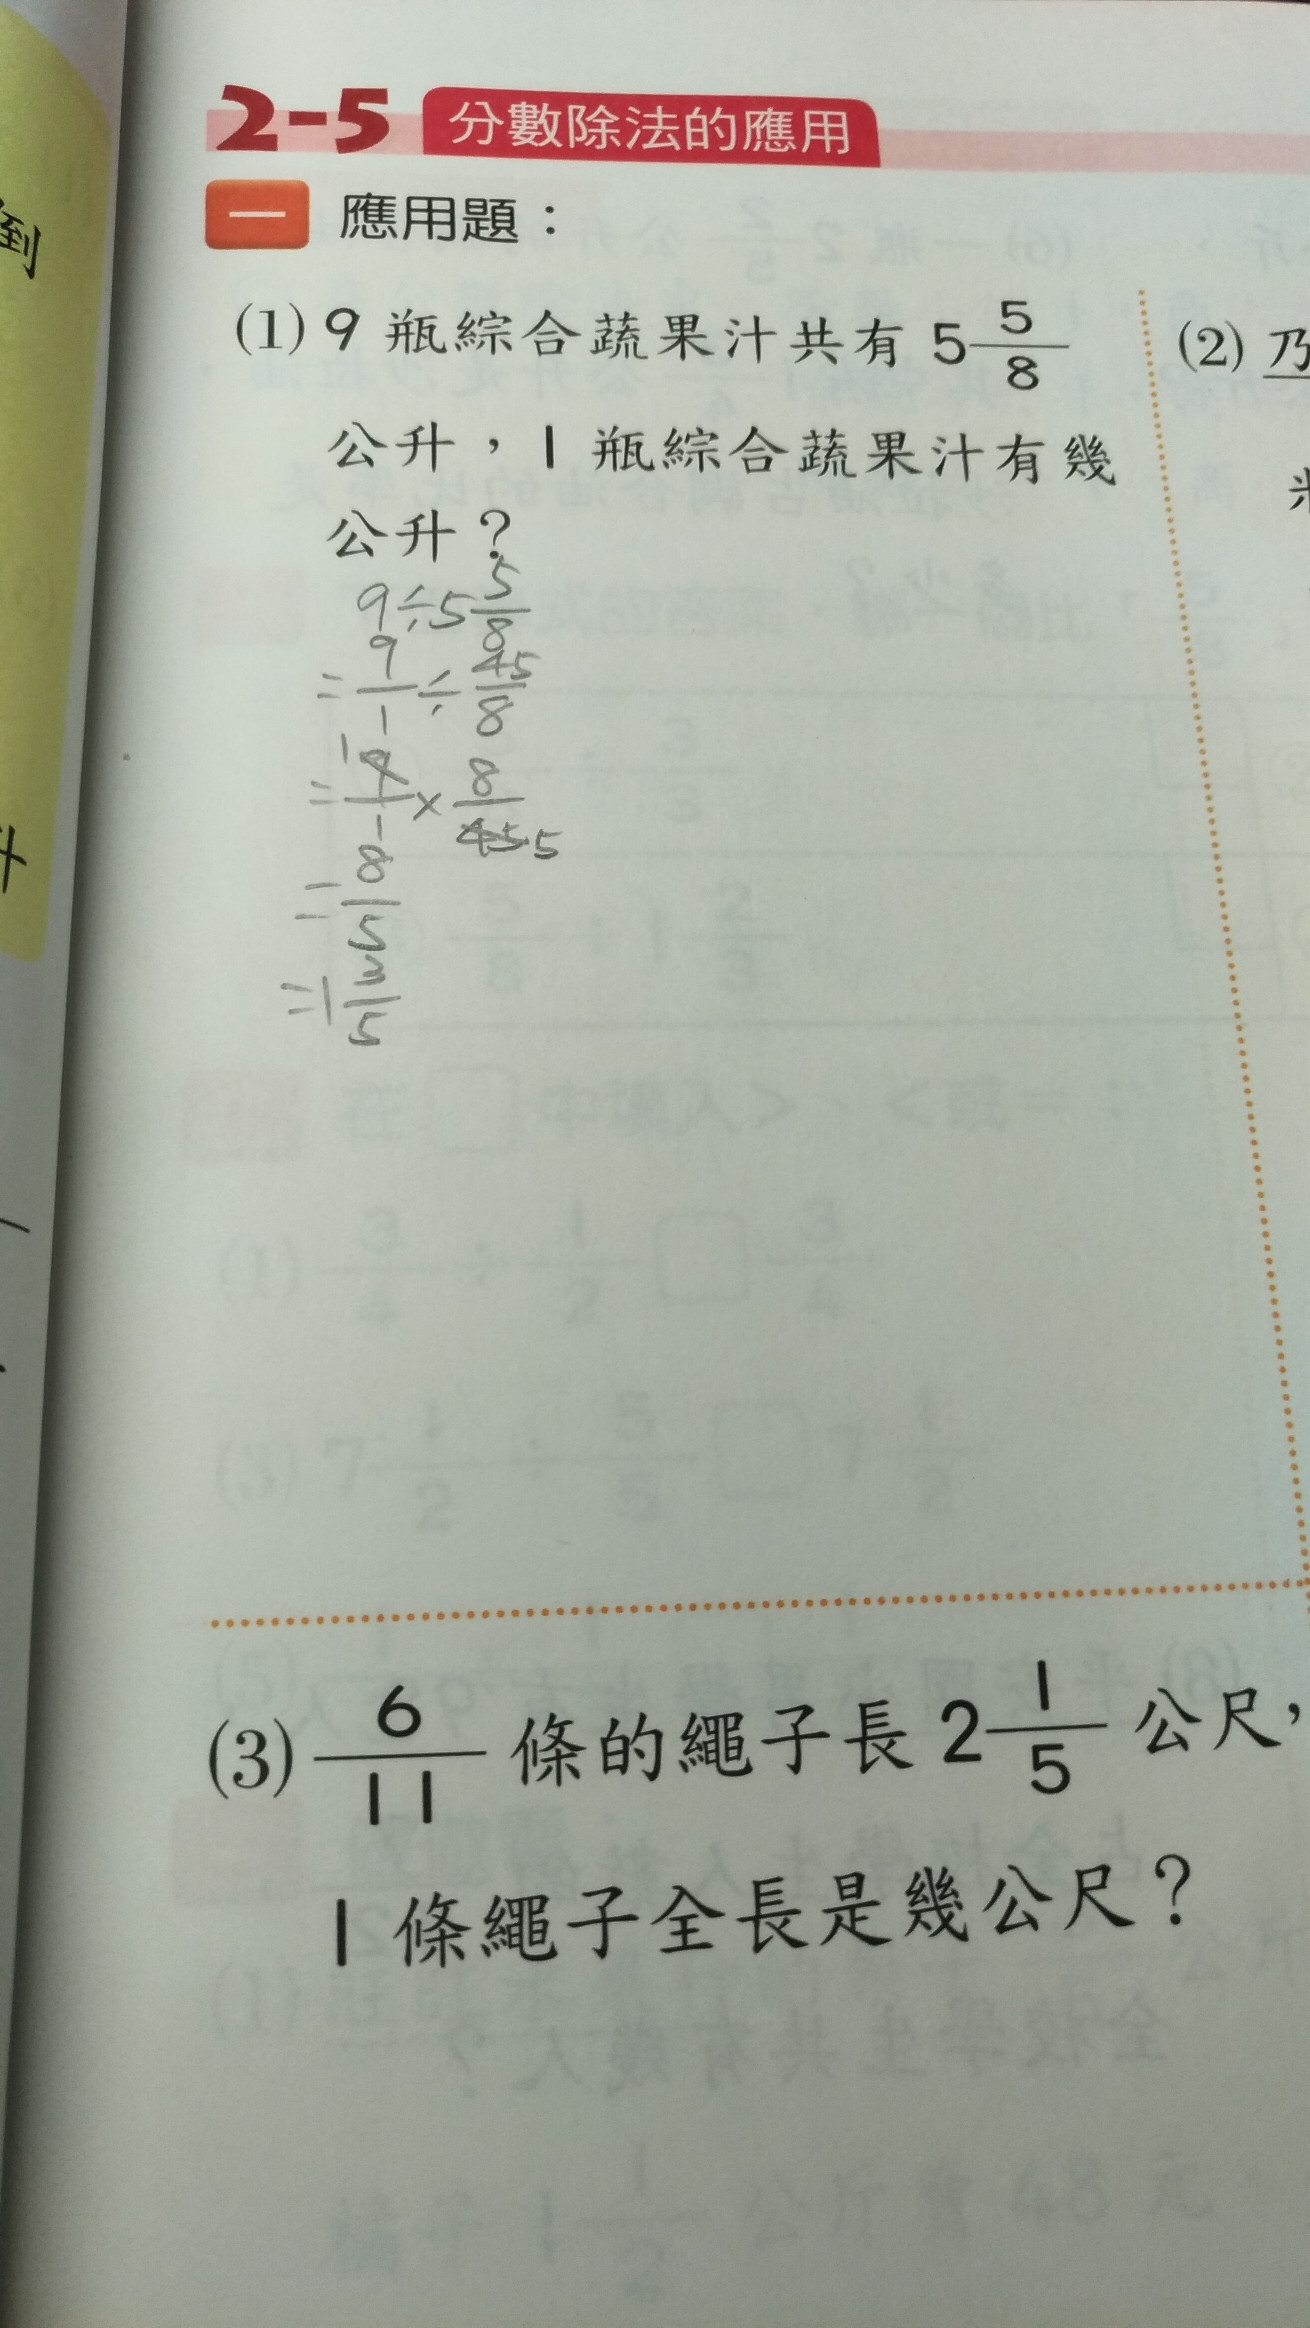 2-5 分數除法的應用
一 應用題：
(1) 9 瓶綜合蔬果汁共有 5 5/8
公升，1 瓶綜合蔬果汁有幾
公升？
9÷5 5/8
= 9/1 ÷ 45/8
= 9/1 × 8/45 1 5
= 8/5
= 1 3/5
(2) 乃
(3) 6/11 條的繩子長 2 1/5 公尺，
1 條繩子全長是幾公尺？
到
升